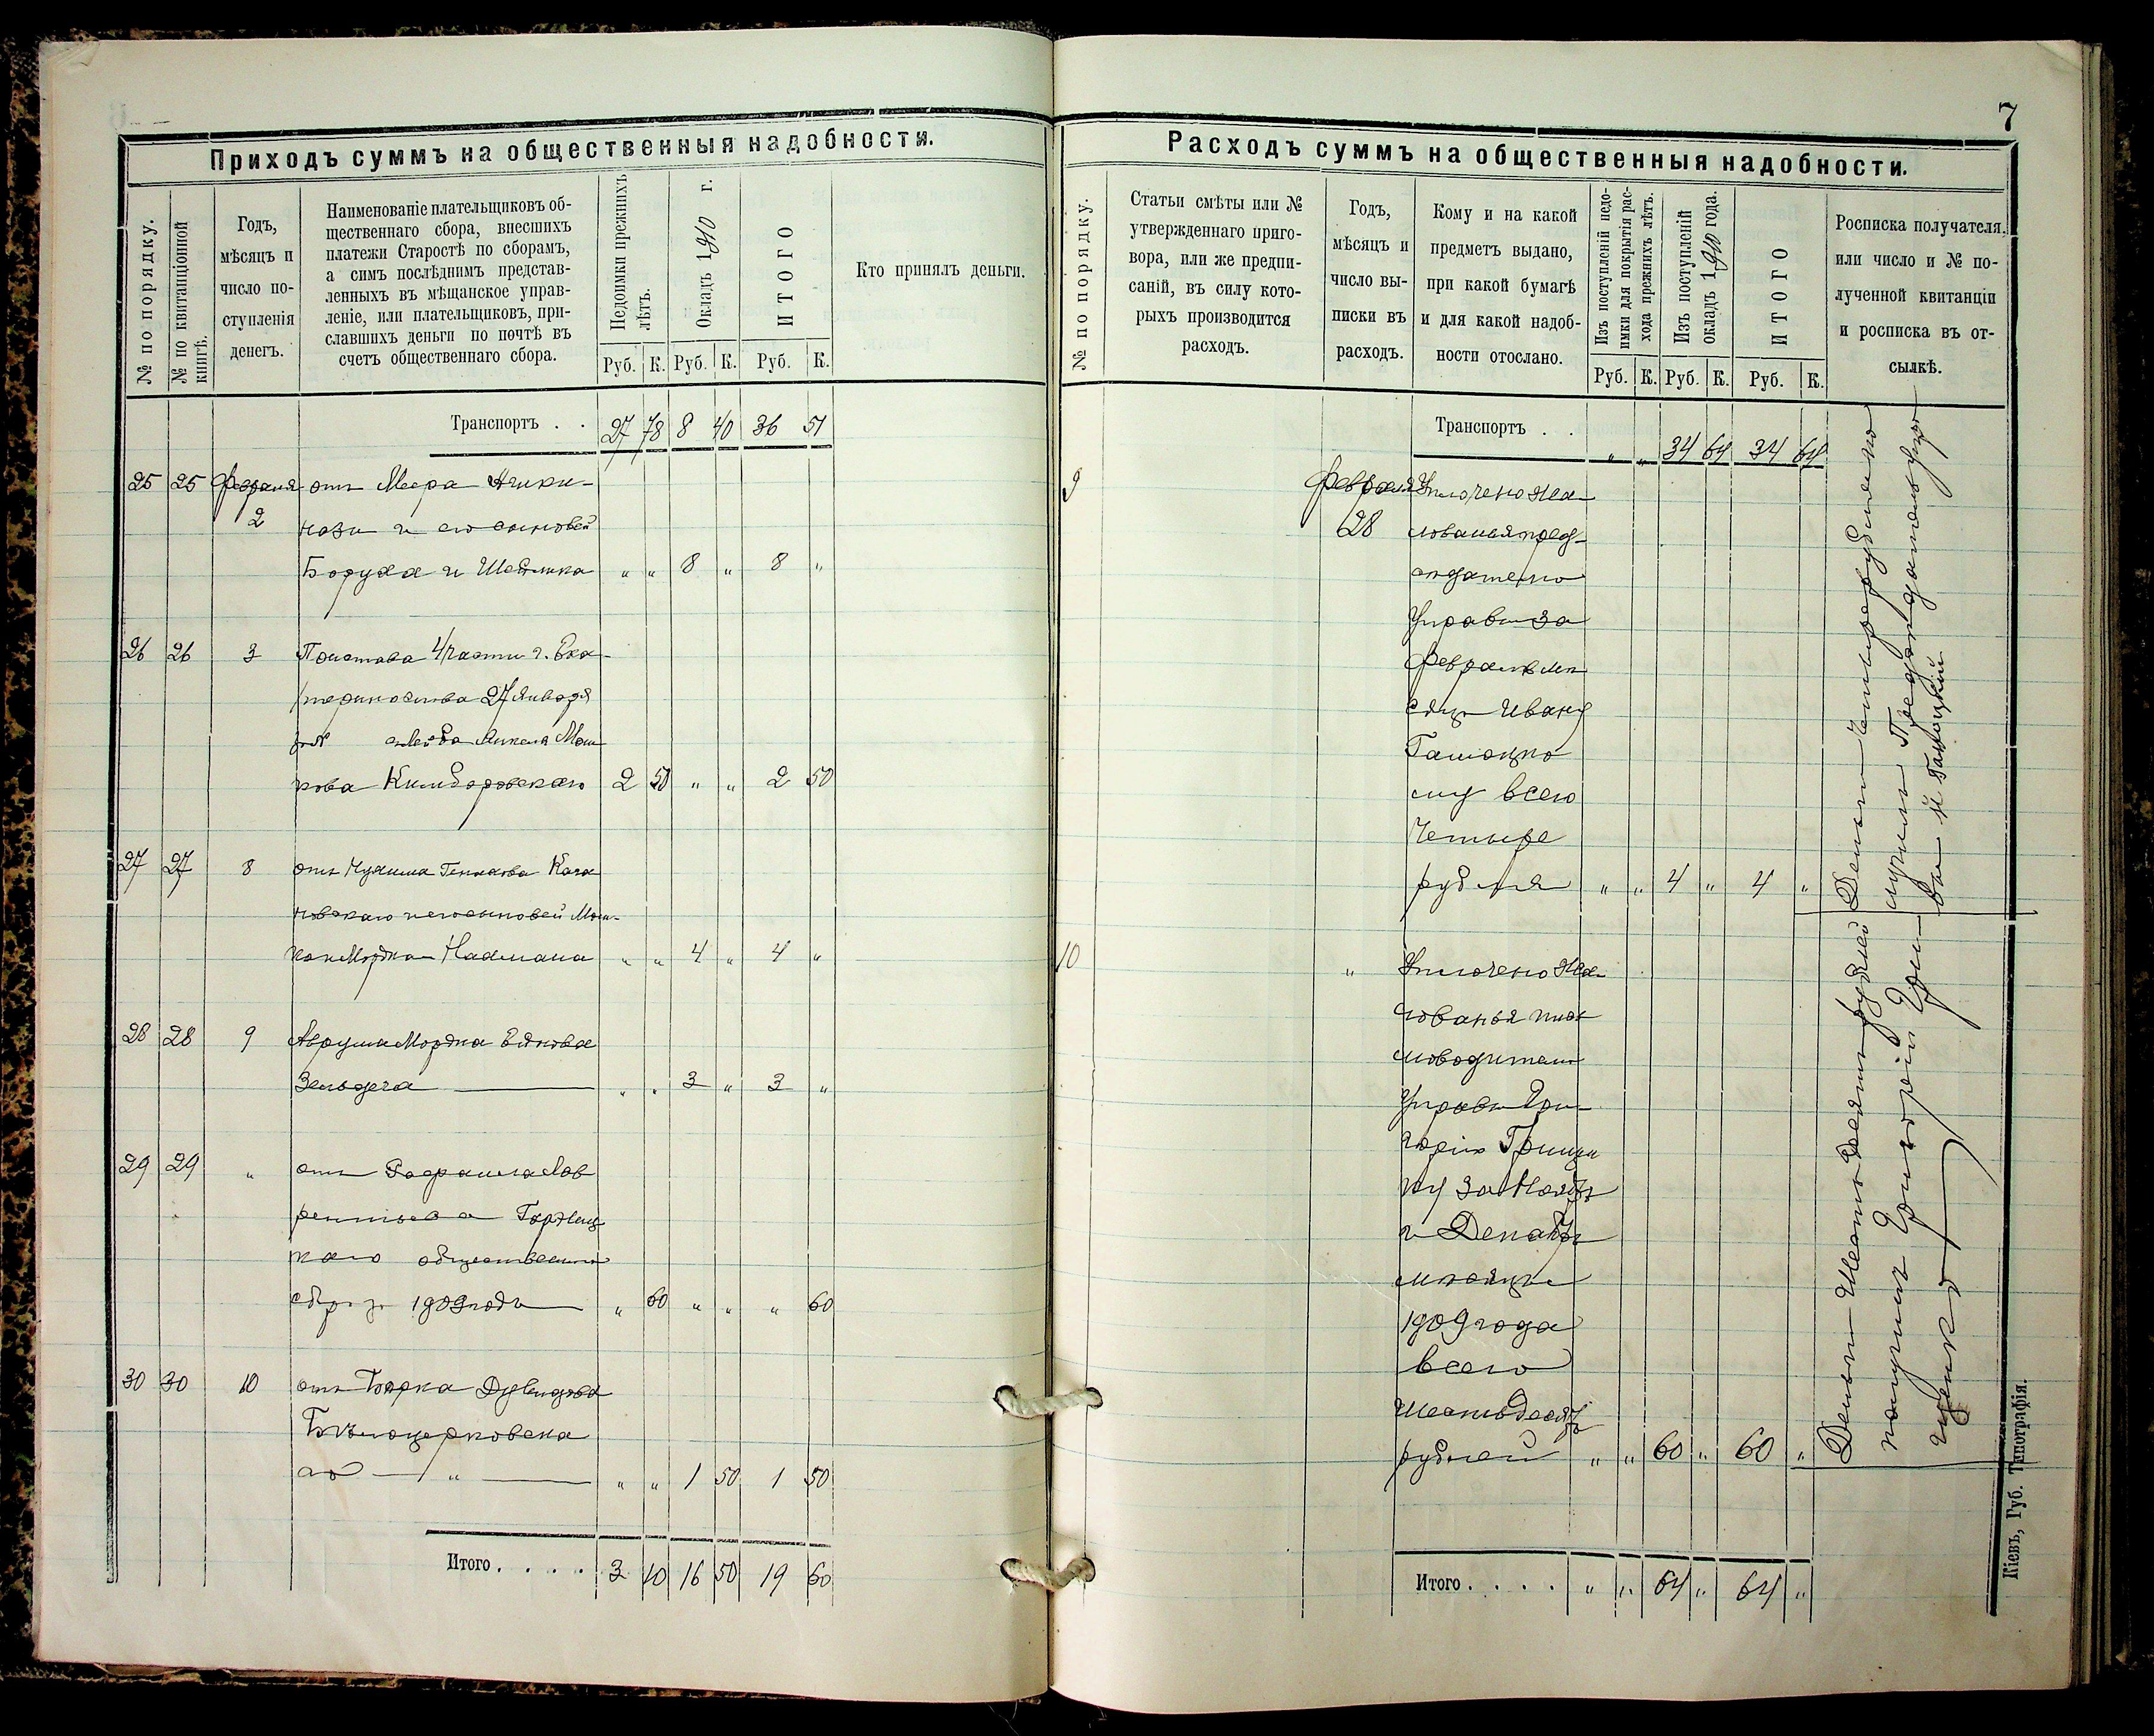 Приходъ суммъ на общественныя надобности.
№ по порядку.
№ по квитанціонной
книгѣ.
Годъ,
мѣсяцъ и
число по-
ступленія
денегъ.
Наименованіе плательщиковъ об-
щественнаго сбора, внесшихъ
платежи Старостѣ по сборамъ,
а симъ послѣднимъ представ-
ленныхъ въ мѣщанское управ-
леніе, или плательщиковъ, при-
славшихъ деньги по почтѣ въ
счетъ общественнаго сбора.
Недоимки прежнихъ
лѣтъ.
Окладъ 1910 г.
ИТОГО
Руб. К. Руб. К. Руб. К.
Кто принялъ деньги.
Транспортъ . . 27 78 8 40 36 51
25 25 Февраля отъ Меера
2 и его сыновей
Боруха и Шаблика „ „ 8 „ 8 „
26 26 3 Пристава 4 части г. Ека-
теринослава 27 Января
Лейба Янкеля Мош
кова 2 50 „ „ 2 50
27 27 8 отъ
сыновей Мош-
Нахмана „ „ 4 „ 4 „
28 28 9 Аврума Мордка
„ „ 3 „ 3 „
29 29 „ отъ
каго общественный
сборъ за 1909 годъ „ 60 „ „ „ 60
30 30 10 отъ Берка Дувидова
Бѣлоцерковска
го — „ — „ „ 1 50 1 50
Итого . . . . 3 10 16 50 19 60
7
Расходъ суммъ на общественныя надобности.
№ по порядку.
Статьи смѣты или №
утвержденнаго приго-
вора, или же предпи-
саній, въ силу кото-
рыхъ производится
расходъ.
Годъ,
мѣсяцъ и
число вы-
писки въ
расходъ.
Кому и на какой
предметъ выдано,
при какой бумагѣ
и для какой надоб-
ности отослано.
Изъ поступленій недо-
имки для покрытія рас-
хода прежнихъ лѣтъ.
Изъ поступленій
окладъ 1910 года.
ИТОГО
Руб. К. Руб. К. Руб. К.
Росписка получателя,
или число и № по-
лученной квитанціи
и росписка въ от-
сылкѣ.
Транспортъ . . „ „ 34 64 34 64
9 Февраля Уплочено жа-
28 лованья пред-
сѣдателю
Управы за
Февраль мѣ
сяцъ Ивану
Галюцко
му всего
четыре
рубля „ „ 4 „ 4 „
Деньги четыре рубля по
лучилъ Предсѣдатель Упра
вы И Галюцкій
10 „ Уплочено жа-
лованья пись
моводителю
Управы Гри-
горію Грицен
ку за Ноябрь
и Декабрь
мѣсяцы
1909 года
всего
шестьдесятъ
рублей „ „ 60 „ 60 „
Деньги шестьдесятъ рублей
получилъ Григорій Гри-
ценко
Итого . . . . „ „ 64 „ 64 „
Кіевъ, Губ. Типографія.